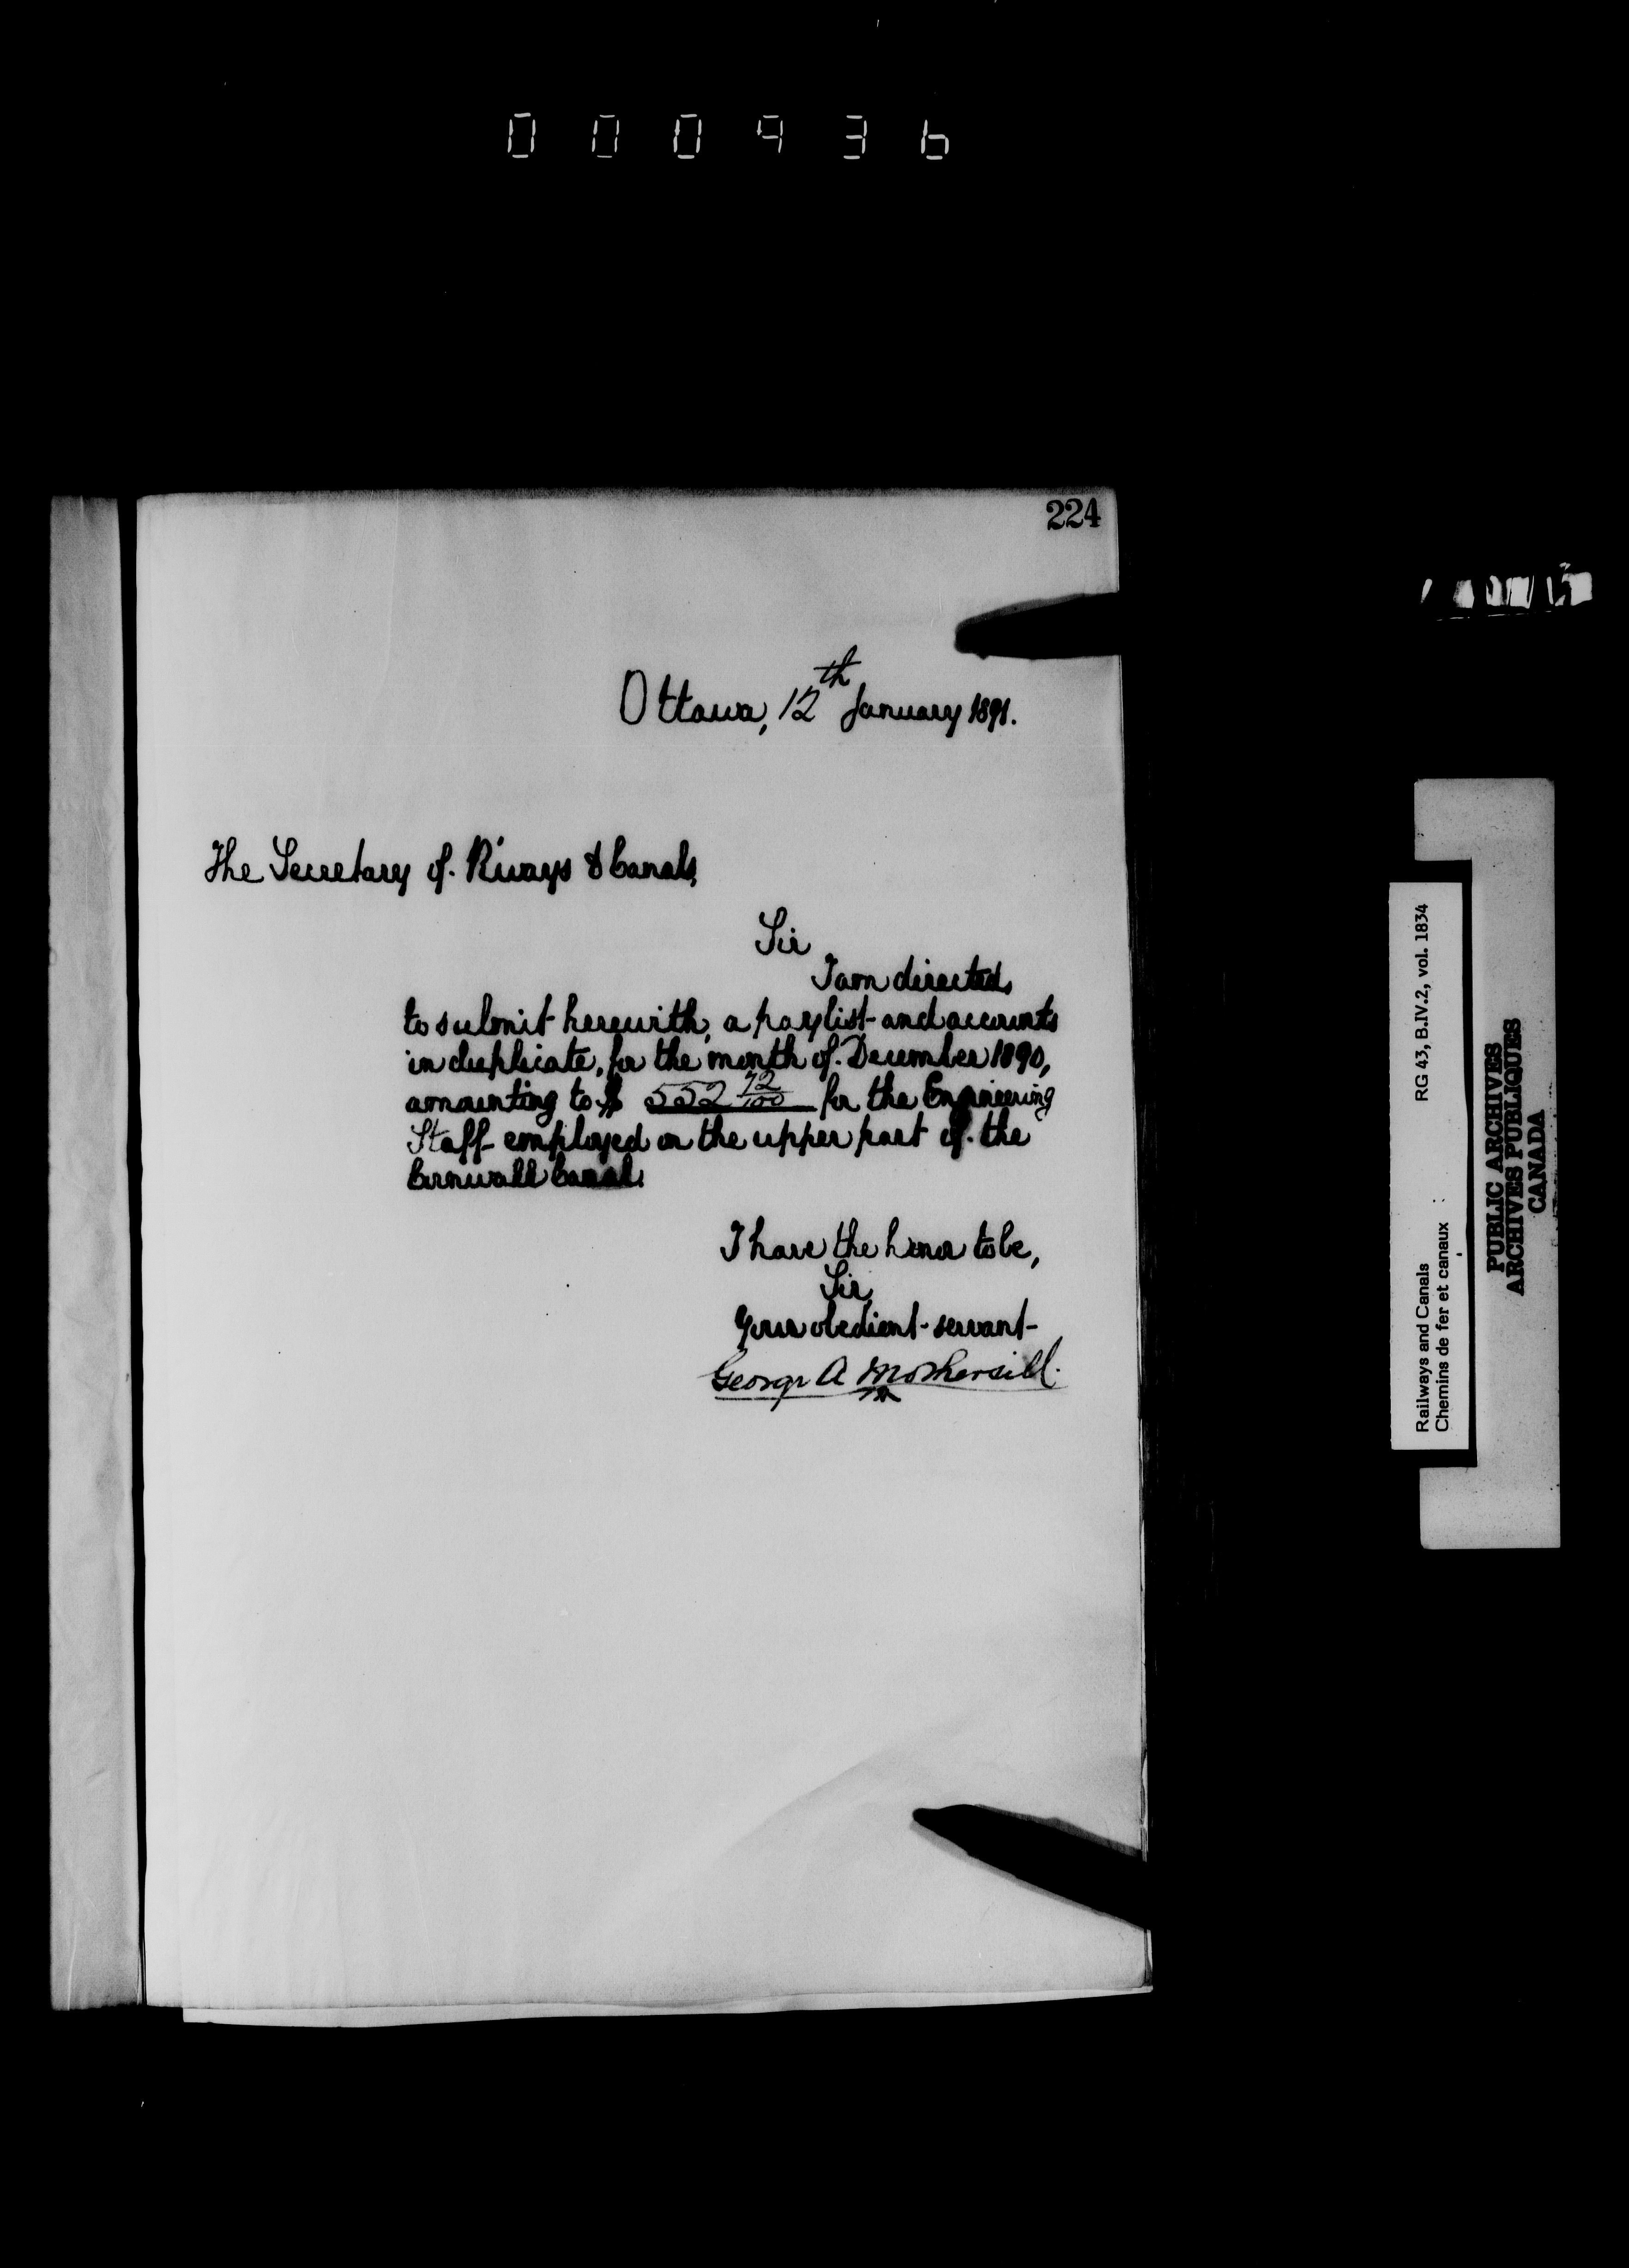 000936
224
Ottawa, 12th January 1891.
The Secretary of R'ways & Canals,
Sir
I am directed
to submit herewith, a paylist and accounts
in duplicate, for the month of December 1890,
amounting to $ 552 72/100 for the Engineering
Staff employed on the upper part of the
Cornwall Canal.
I have the honor to be,
Sir,
Your obedient servant
George A Mothersill.
RG 43, B.IV.2, vol. 1834
Railways and Canals
Chemins de fer et canaux
PUBLIC ARCHIVES
ARCHIVES PUBLIQUES
CANADA